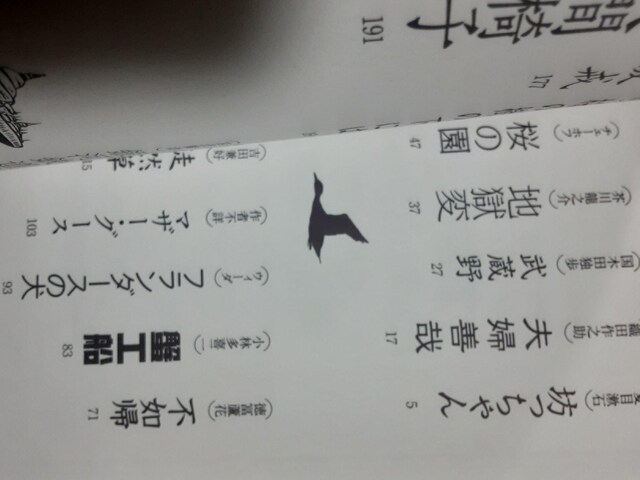 坊っちゃん
(夏目漱石)
5
夫婦善哉
(織田作之助)
17
武蔵野
(国木田独歩)
27
地獄変
(芥川龍之介)
37
桜の園
(チェーホフ)
47
不如帰
(徳冨蘆花)
71
蟹工船
(小林多喜二)
83
フランダースの犬
(ウィーダ)
93
マザー・グース
(作者不詳)
103
徒然草
(吉田兼好)
15
間椅子
191
戒
177